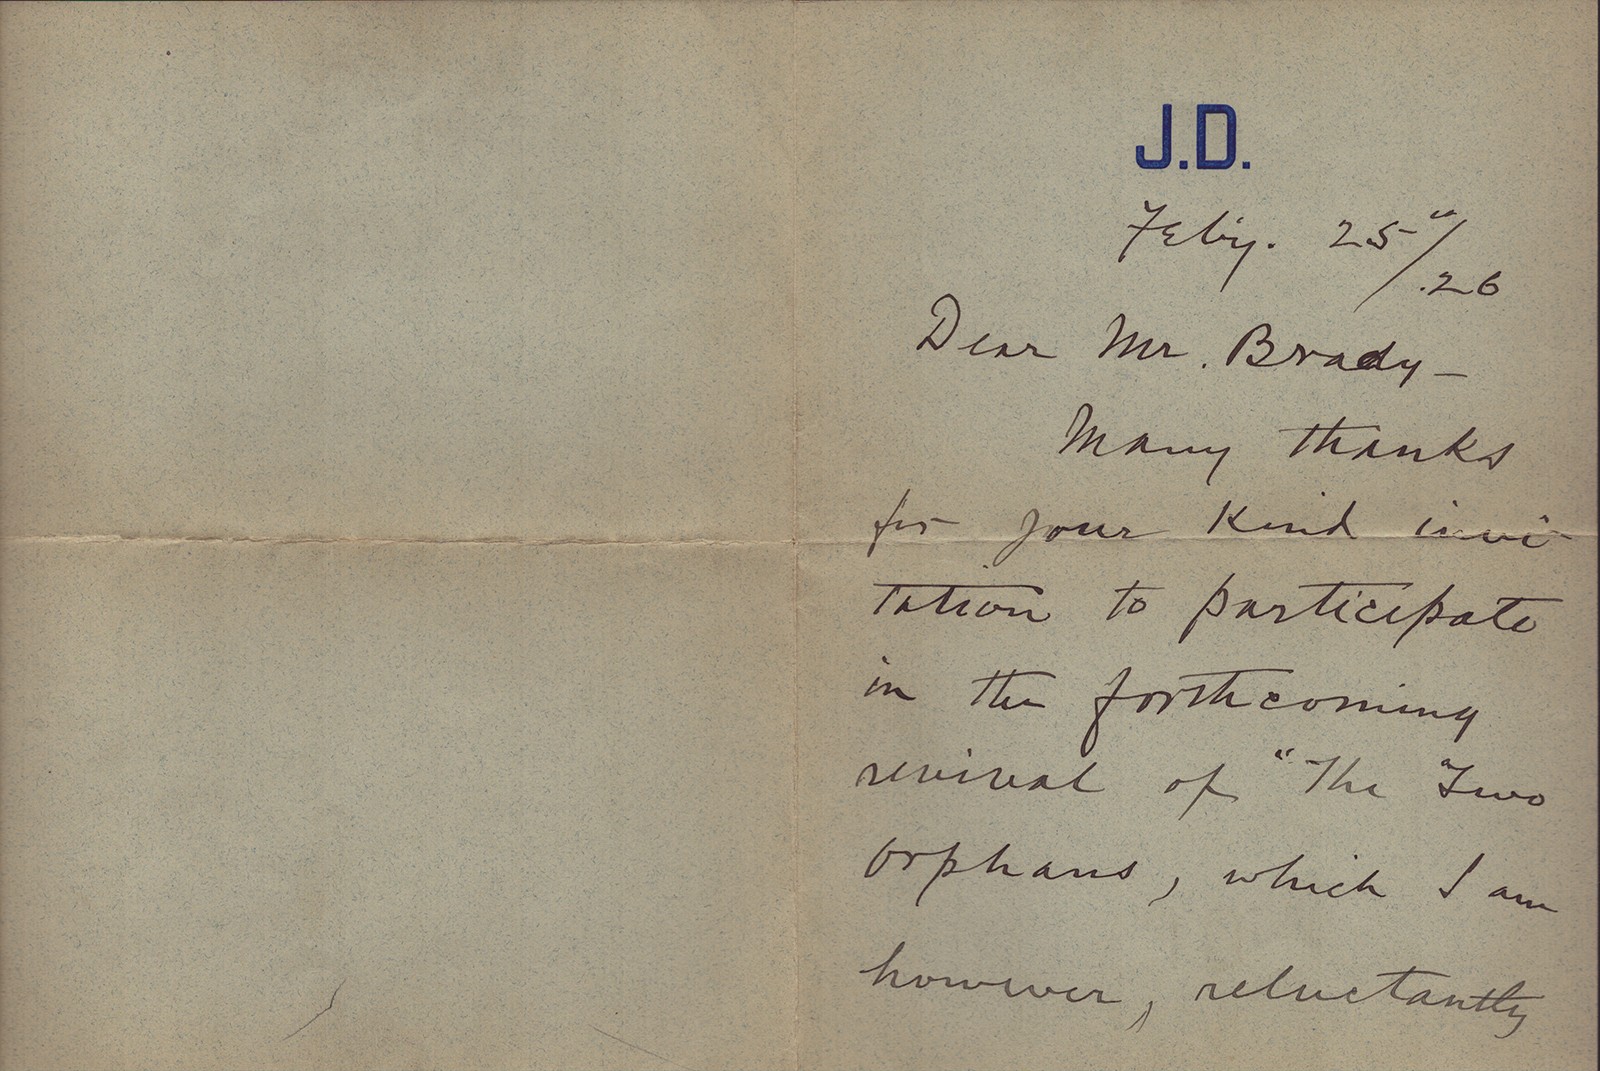 J.D.
Feby. 25"/
.26
Dear Mr. Brady –
Many thanks
for your kind invi-
tation to participate
in the forthcoming
revival of "The Two
Orphans, which I am
however, reluctantly